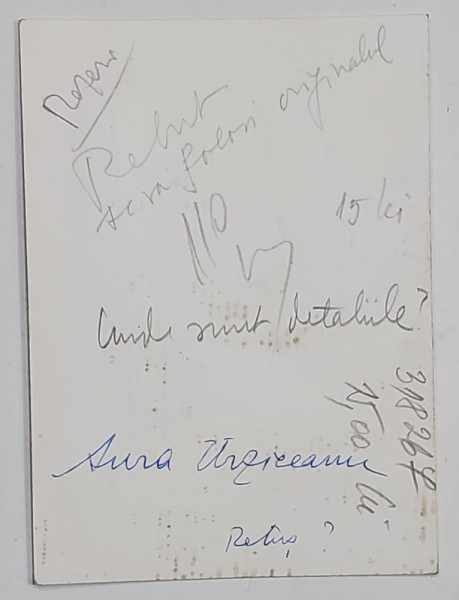 Rebut
se va folosi originalul
110
15 lei
Unde sunt detaliile?
318267
15,00 lei
Aura Urziceanu
Retuș ?